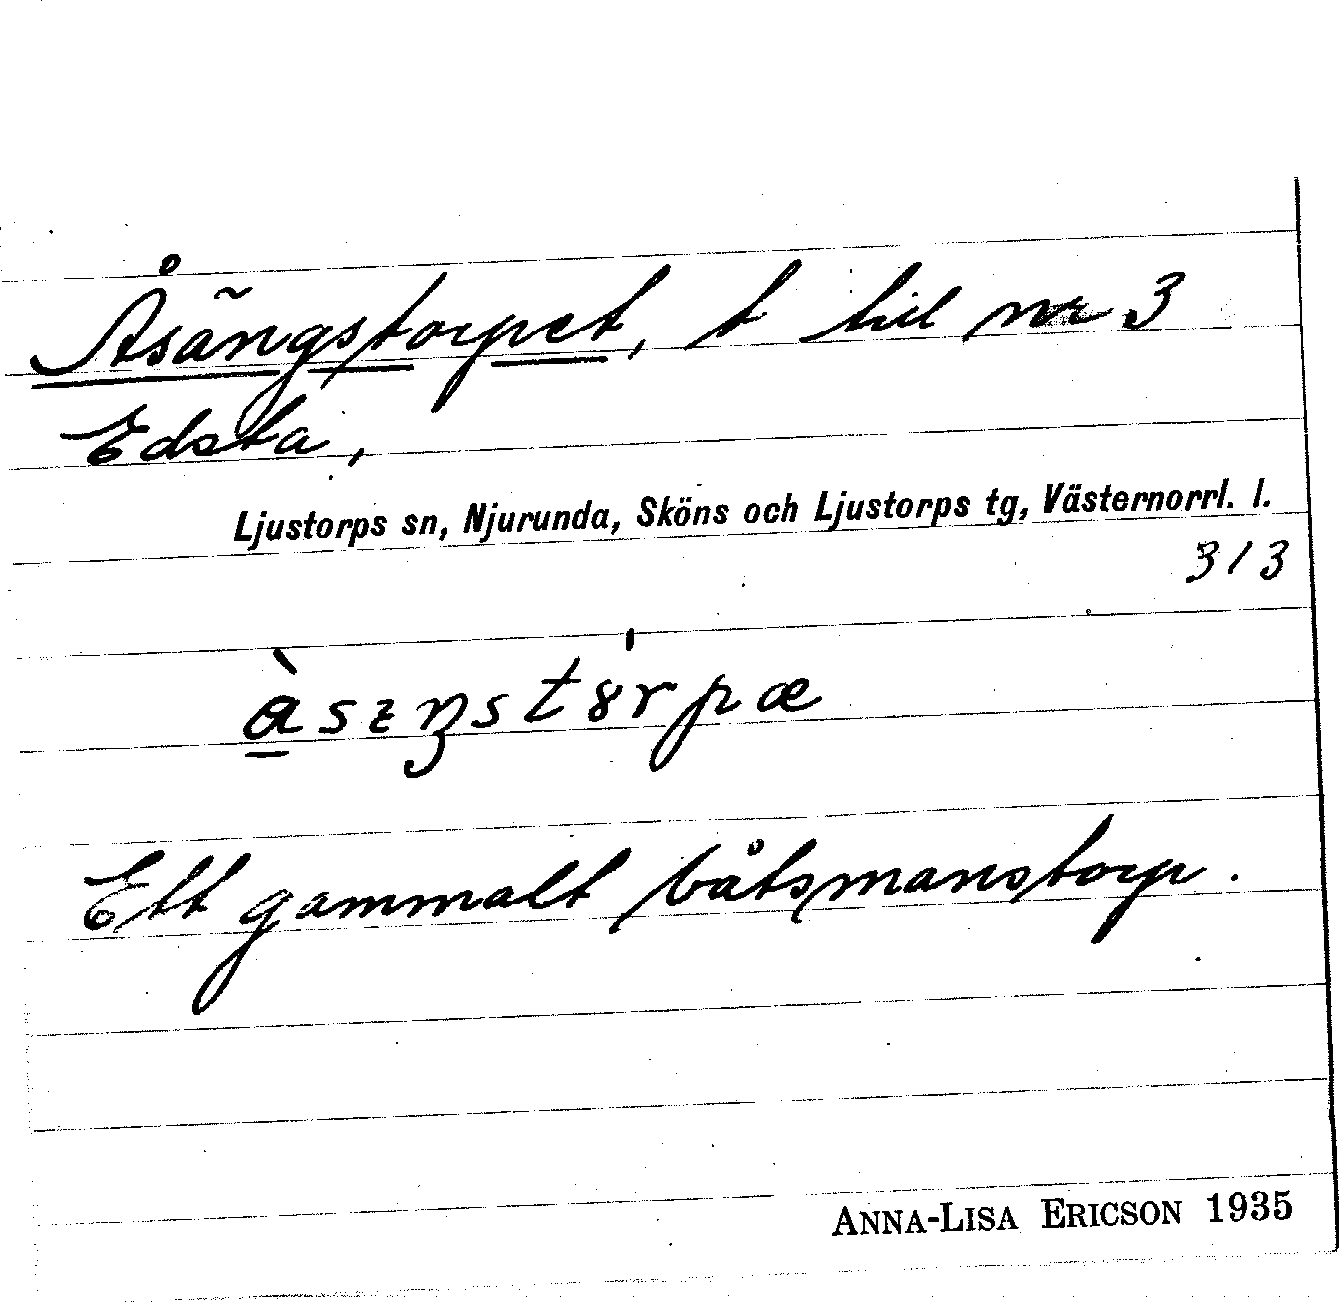 Åsängstorpet, t till nr 3
Edsta,
Ljustorps sn, Njurunda, Sköns och Ljustorps tg, Västernorrl. l.
313
Ett gammalt båtsmanstorp.
ANNA-LISA ERICSON 1935